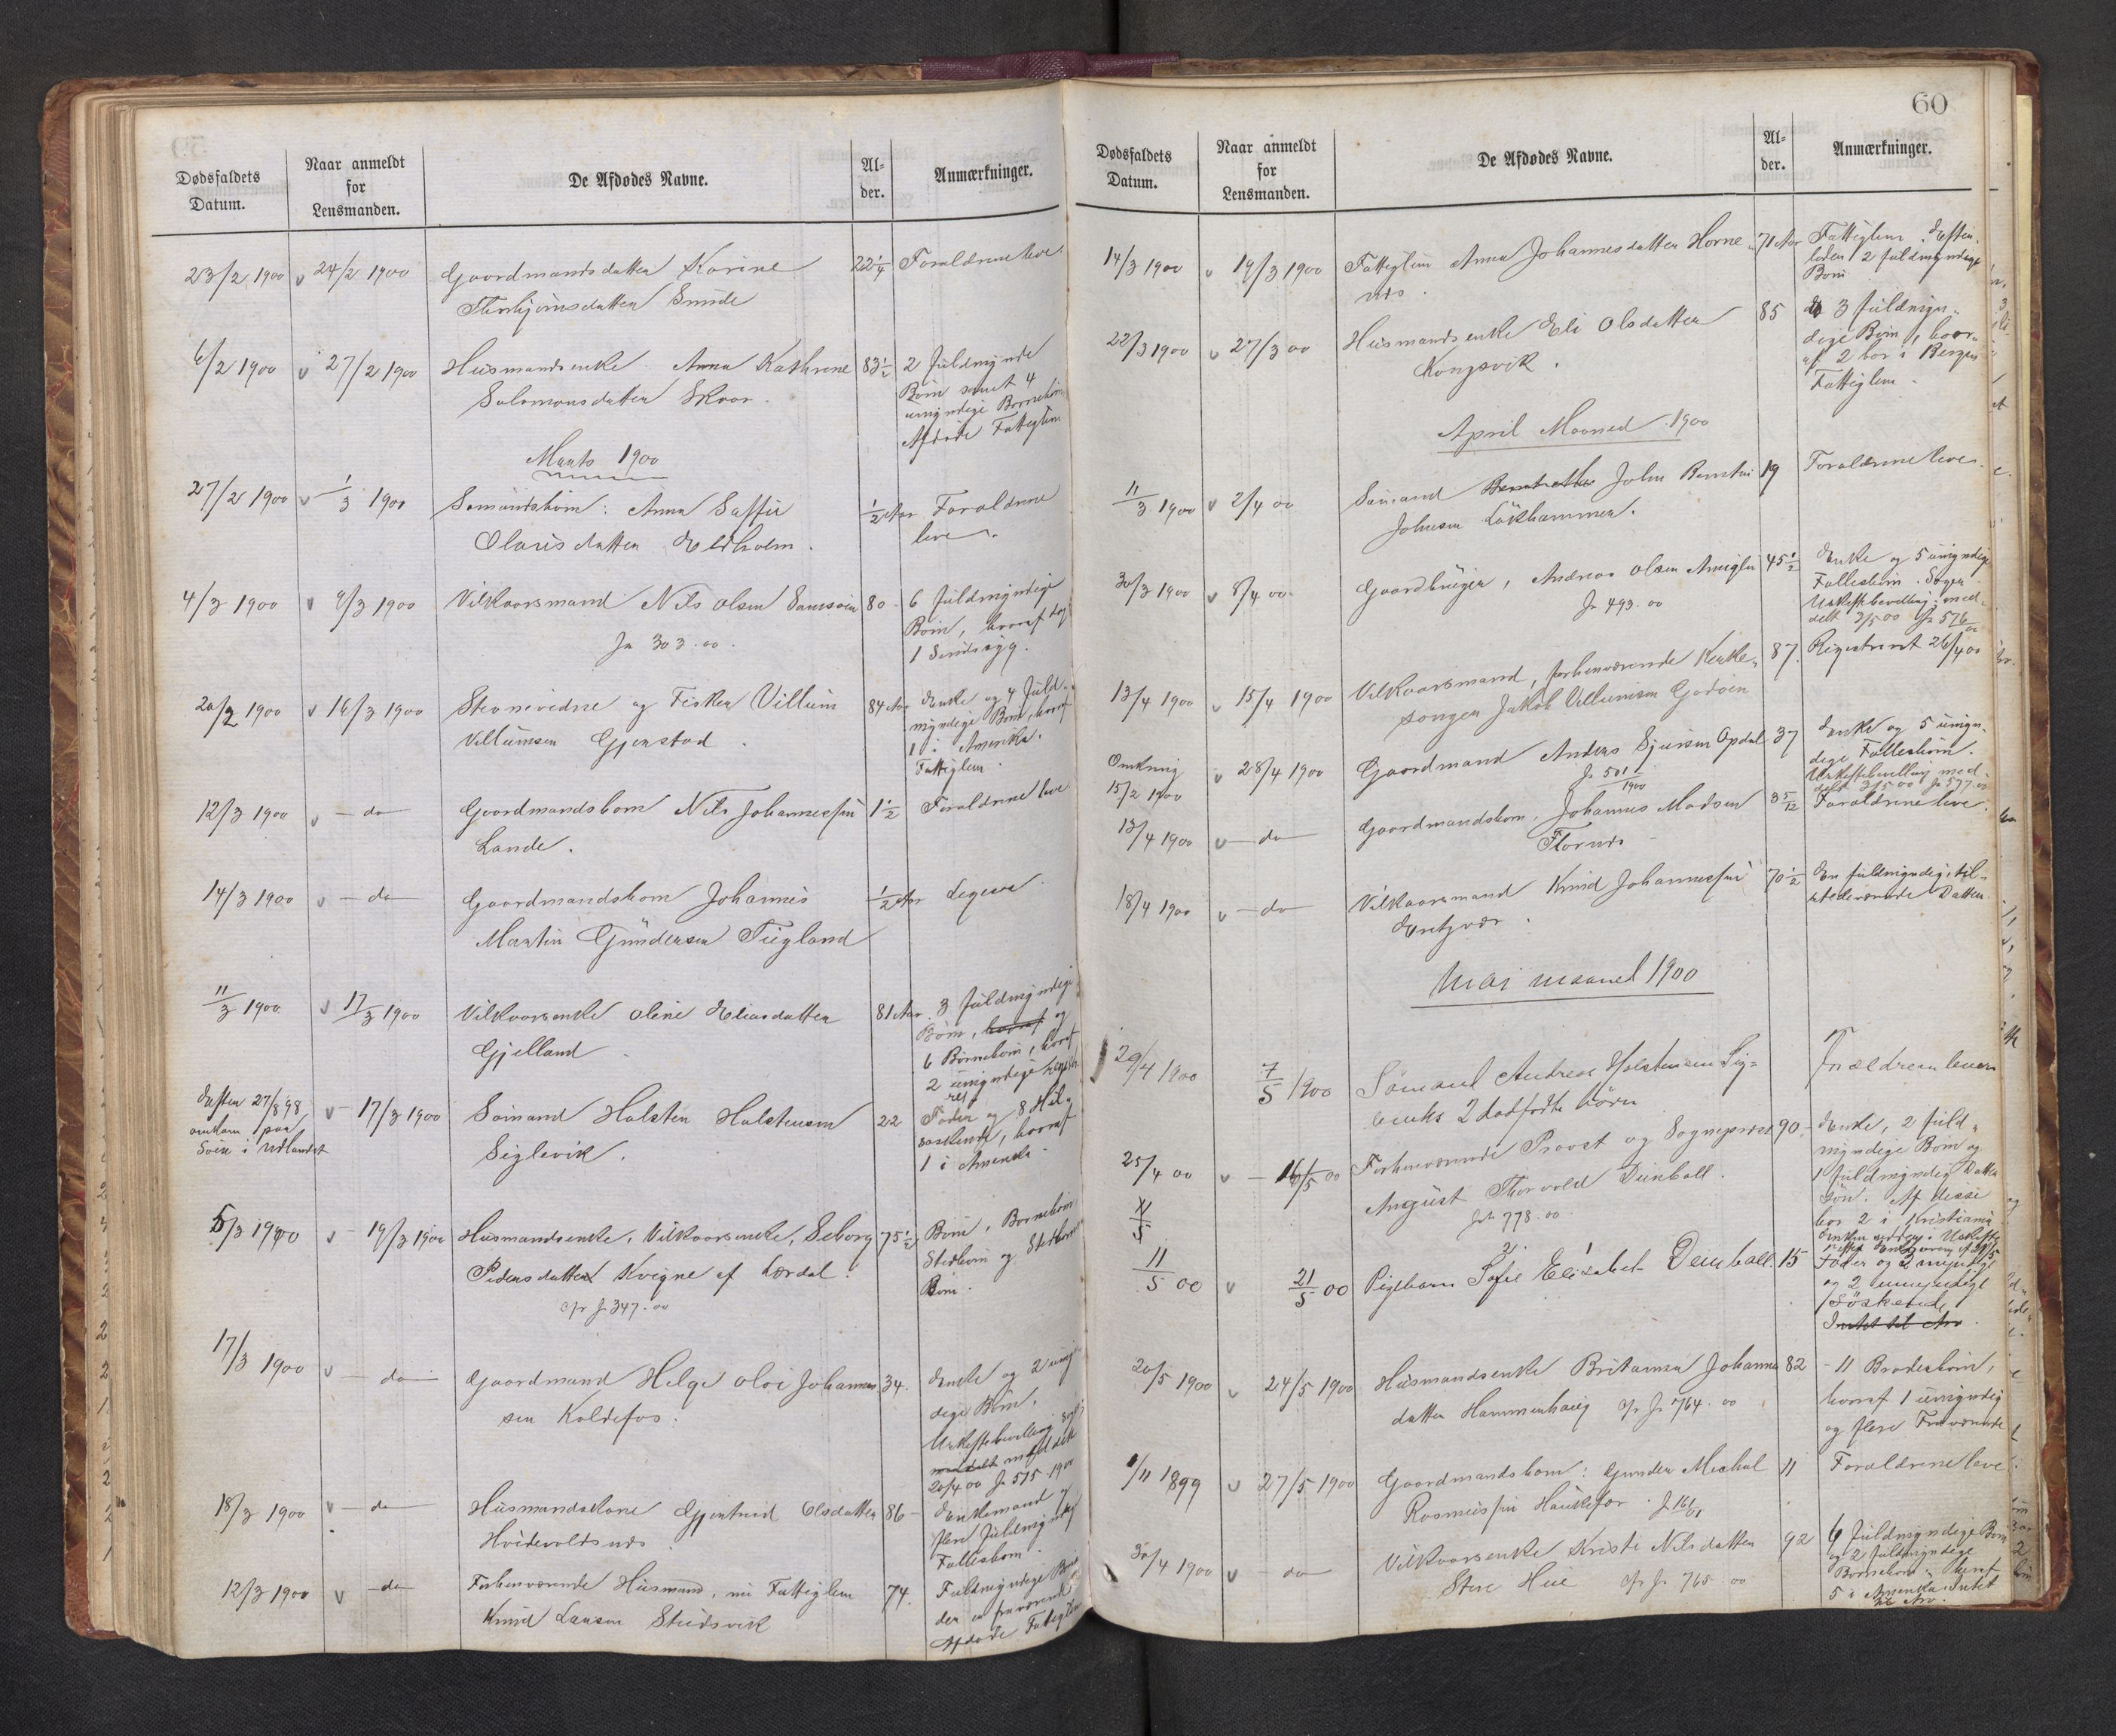 Dødsfaldets
Datum.
Naar anmeldt
for
Lensmanden.
De Afdødes Navne.
Al-
der.
Anmærkninger.
23/2 1900 v 24/2 1900 Gaardmandsdatter Karine 22 1/4 Forældrene leve
Thorbjørnsdatter
6/2 1900 v 27/2 1900 Husmandsenke Anna Kathrine 83 1/2 2 fuldmynde
Salomonsdatter Skaar.
Børn samt 4
umyndige Børnebørn
Afdøde Fattiglem
Marts 1900
27/2 1900 v 1/3 1900 Sømandsbarn: Anna Saffie 1/2 Aar Forældrene
Olausdatter Eldholm.
leve.
4/3 1900 v 9/3 1900 Vilkaarsmand Nils Olsen 80 6 fuldmyndige
Jr 303.00.
Børn, hvoraf dog
1 Sindssyg.
20/2 1900 v 16/3 1900 og Fisker Villum 84 Aar Enke og 4 fuld-
Villumsen Gjerstad.
myndige Børn, hvoraf
1 i Amerika.
Fattiglem.
12/3 1900 v - do - Gaardmandsbarn Nils Johannessen 1 1/2 Forældrene leve
Lande.
14/3 1900 v - do - Gaardmandsbarn Johannes 1/2 Aar Ligesaa
Martin Gundersen Tugland
11/3 1900 v 17/3 1900 Vilkaarsenke Oline Eliasdatter 81 Aar 3 fuldmyndige
Gjelland
Børn, hvoraf og
6 Børnebørn, hvoraf
2 umyndige
Efter 27/8 98
omkom paa
Søen i Udlandet
v - 17/3 1900 Sømand Halsten Halstensen 22 Fader og 8 Hel-
Siglevik.
søskende, hvoraf
1 i Amerika.
5/3 1900 v - 19/3 1900 Husmandsenke, Vilkaarsenke, Seborg 75 1/2 Børn, Børnebørn
Pedersdatter Kvigne af Lærdal.
Stedbørn og Stedbørns
Cfr Jr 347.00
Børn.
17/3 1900 v - do - Gaardmand Helge Olai Johannes- 34. Enke og 2 umyn
sen Koldefos.
dige Børn.
Uskiftebevilling
meddelt
20/4 00 Jr 515.1900
18/3 1900 v - do - Husmandskone Gjertrud Olsdatter 86 - Enkemand og
Hvidevoldsnæs
flere fuldmyndige
Fællesbørn.
12/3 1900 v - do - Forhenværende Husmand, nu Fattiglem 74. Fuldmyndige Børn
Knud Larsen
der er fraværende
Afdøde Fattiglem
60
Dødsfaldets
Datum.
Naar anmeldt
for
Lensmanden.
De Afdødes Navne.
Al-
der.
Anmærkninger.
14/3 1900 v 19/3 1900 Fattiglem Anna Johannesdatter Horne- 71 Aar Fattiglem. Efter-
næs.
lader 2 fuldmyndige
Børn
22/3 1900 v 27/3 00 Husmandsenke Eli Olsdatter 85 3 fuldmyn-
Kongsvik.
dige Børn, hvor-
af 2 bor i Bergen
Fattiglem.
April Maaned 1900
11/3 1900 v 2/4 00 Sømand John Berntin 19 Forældrene leve.
Johnsen Løkhammer.
30/3 1900 v 8/4 00 Gaardbruger, Andreas Olsen 45 1/2 Enke og 5 umyndige
Jr 493.00
Fællesbørn. Søger
Uskiftebevilling; med-
delt 3/5 00 Jr 576/00
13/4 1900 v 15/4 1900 Vilkaarsmand, forhenværende Kirke- 87. Registreret 26/4 00
sanger Jakob Villumsen Godøen
Omkring
15/2 1900
v 28/4 1900 Gaardmand Anders Sjursen Opdal 37 Enke og 5 umyn-
Jr 501/1900
dige Fællesbørn.
Uskiftebevilling med-
delt 3/5 00 Jr 577.00
13/4 1900 v - do - Gaardmandsbarn, Johannes Madsen 3 5/12 Forældrene leve.
Flornæs
18/4 1900 v - do - Vilkaarsmand Knud Johannessen 70 1/2 En fuldmyndig, til-
Engesvær.
stedeværende Datter.
Mai maaned 1900
29/4 1900 7/5 1900 Sømand Andreas Halstensen Sig- Forældrene lever
leviks 2 dødfødte børn
25/4 00 v - 16/5 00 Forhenværende Provst og Sogneprest 90. Enke, 2 fuld-
August Thorvald Deinboll.
Jr 778.00
myndige Børn og
1 fuldmyndig Datter
søn. Af disse
bor 2 i Kristiania
11/5 00 v 21/5 00 Pigebarn Sofie Elisabet Deinboll. 15 Fader og 2 myndige
og 2 umyndige
Søskende
Intet til Arv.
20/5 1900 v 24/5 1900 Husmandsenke Britamen Johannes 82 - 11 Broderbørn,
datter Hammerhaug Cfr Jr 764.00
hvoraf 1 umyndig
og flere Fraværende
1/11 1899 v 27/5 1900 Gaardmandsbarn: Gunder Mechal 11 Forældrene leve
Rasmussen Haukefær. J 16/01
30/4 1900 v - do - Vilkaarsenke Kristi Nilsdatter 92 6 fuldmyndige Børn
Store Hue Cfr Jr 765.00
og 2 fuldmyndige
Børnebørn, hvoraf
5 i Amerika Intet
til Arv.